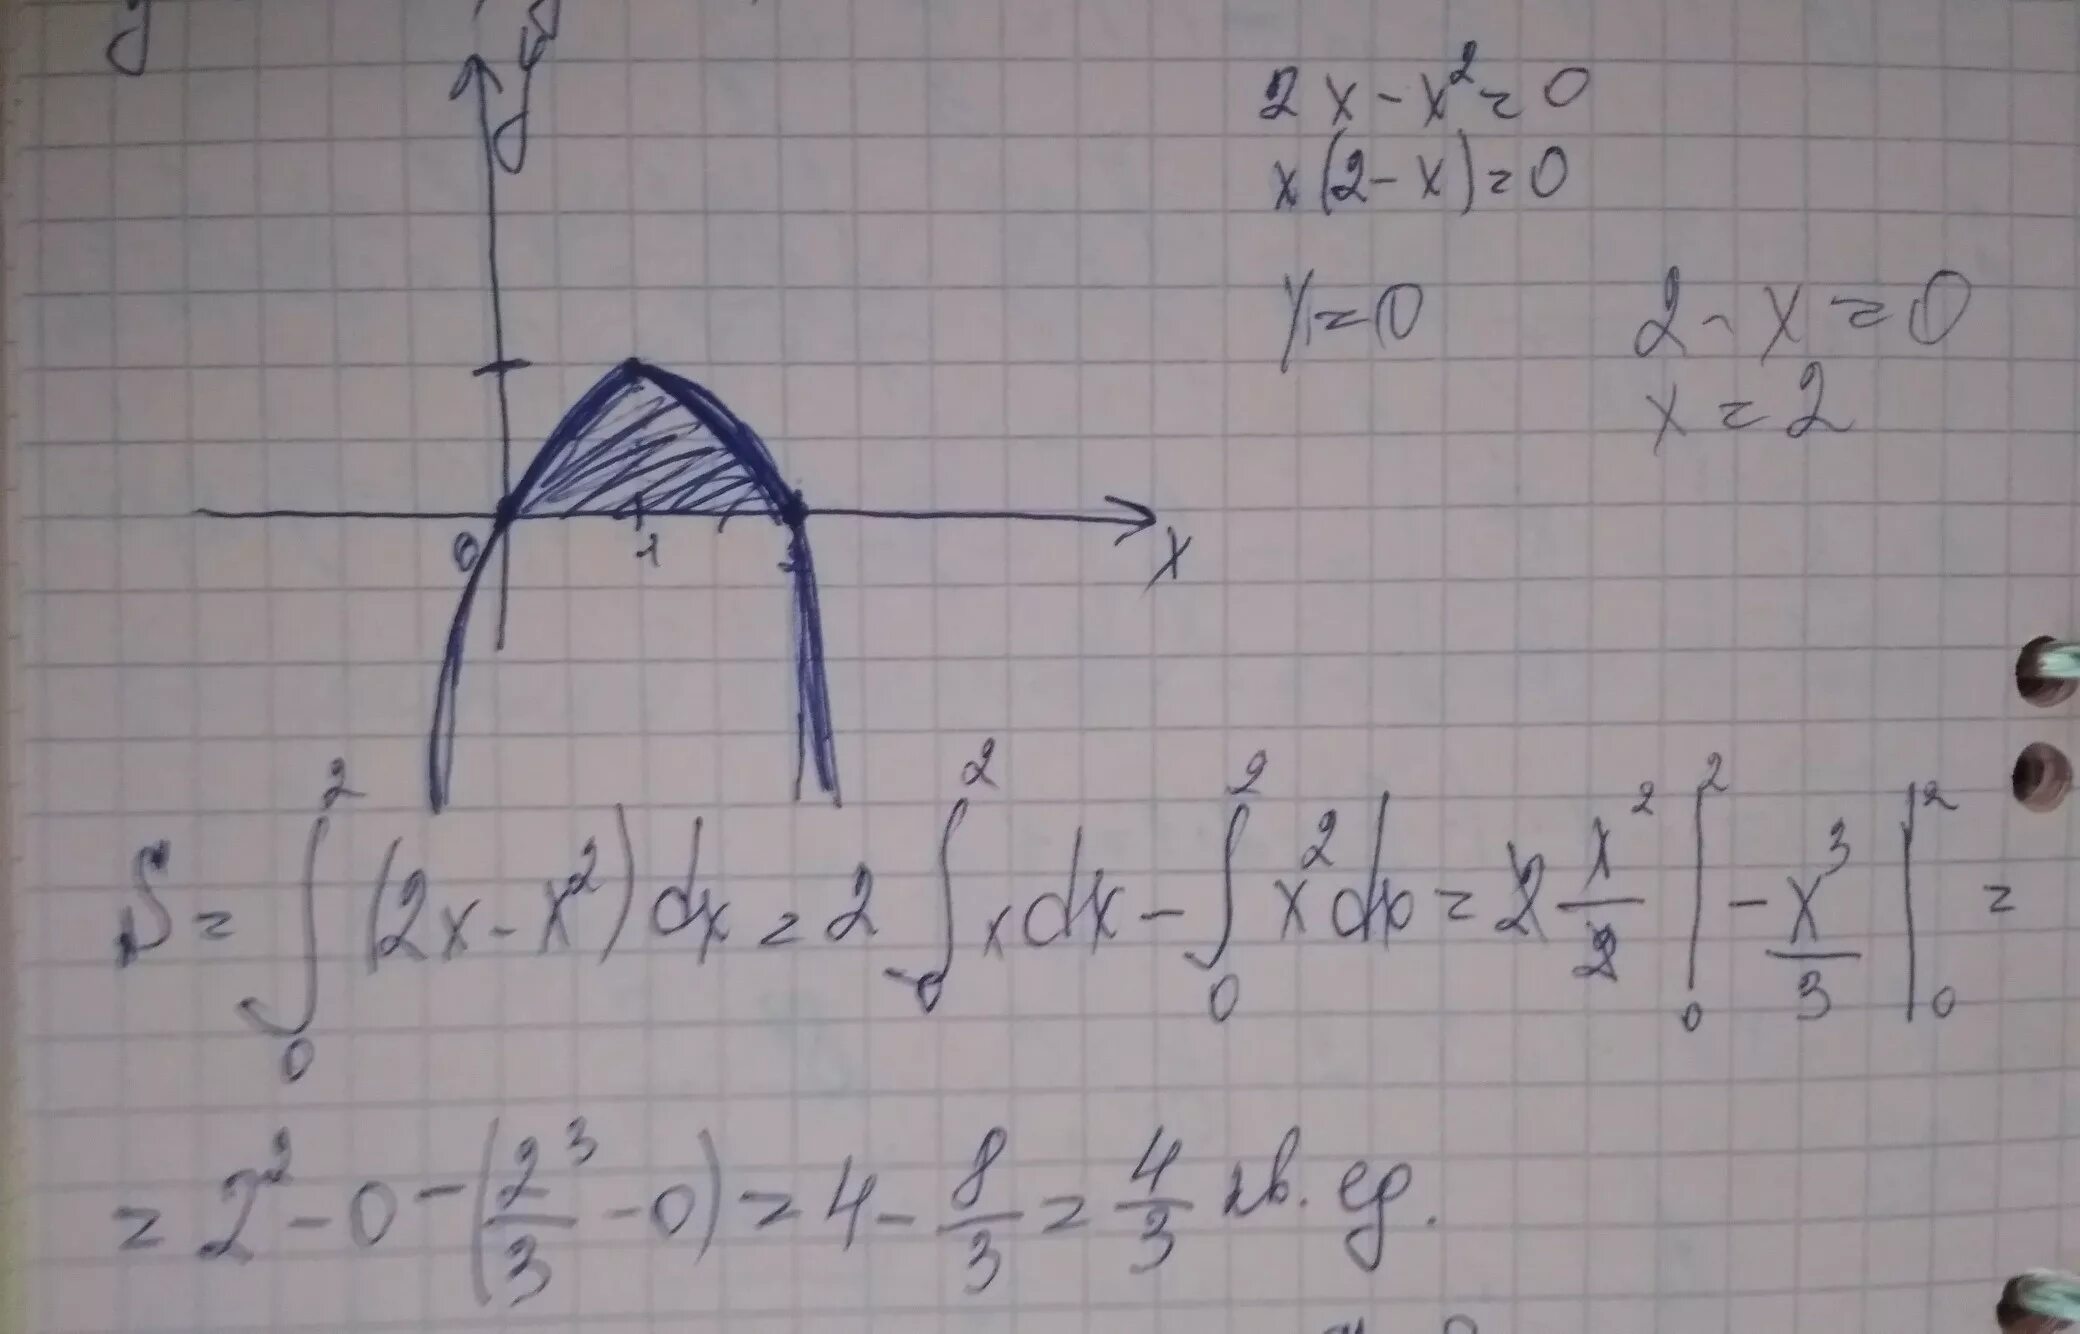 y
2x - x² = 0
x(2 - x) = 0
x = 0 2 - x = 0
x = 2
0 1 2 x
S = ∫₀² (2x - x²) dx = 2 ∫₀² x dx - ∫₀² x² dx = 2 x²/2 |₀² - x³/3 |₀² =
= 2² - 0 - (2³/3 - 0) = 4 - 8/3 = 4/3 кв. ед.